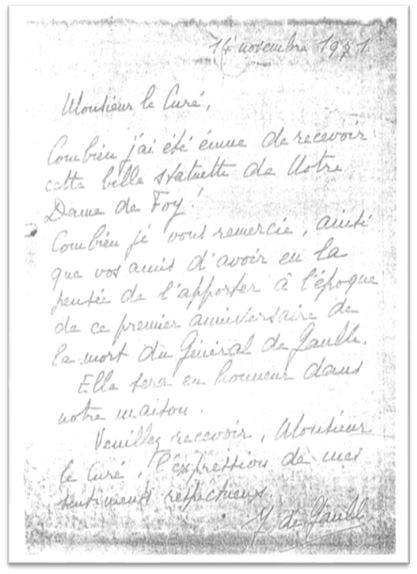 14 novembre 1971.
Monsieur le Curé,
Combien j'ai été émue de recevoir
cette belle statuette de Notre
Dame de Foy !
Combien je vous remercie, ainsi
que vos amis d'avoir eu la
pensée de l'apporter à l'époque
de ce premier anniversaire de
la mort du Général de Gaulle.
Elle sera en honneur dans
notre maison.
Veuillez recevoir, Monsieur
le Curé, l'expression de mes
sentiments respectueux.
Y. de Gaulle